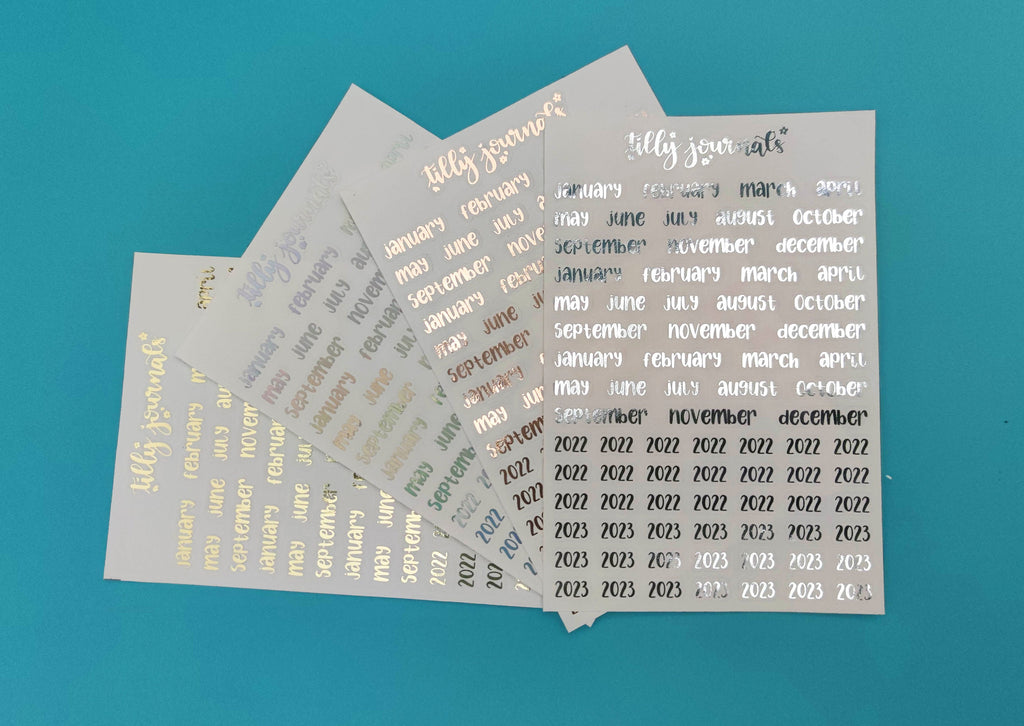 tilly journals
january february march april
may june july august october
September november december
january february march april
may june july august october
September november december
january february march april
may june july august october
September november december
2022 2022 2022 2022 2022 2022 2022
2022 2022 2022 2022 2022 2022 2022
2022 2022 2022 2022 2022 2022 2022
2023 2023 2023 2023 2023 2023 2023
2023 2023 2023 2023 2023 2023 2023
2023 2023 2023 2023 2023 2023 2023
tilly journals
january february
may june july
September
january february
may june
September
january
may june
September
2022
2022
tilly journals
january february april
may june july
September
january
may june
September
january
may june
September
2022 2022
2022
tilly journals
january february april
may june july
September
january february
may june
September
january
may june
September
2022
2022
2022